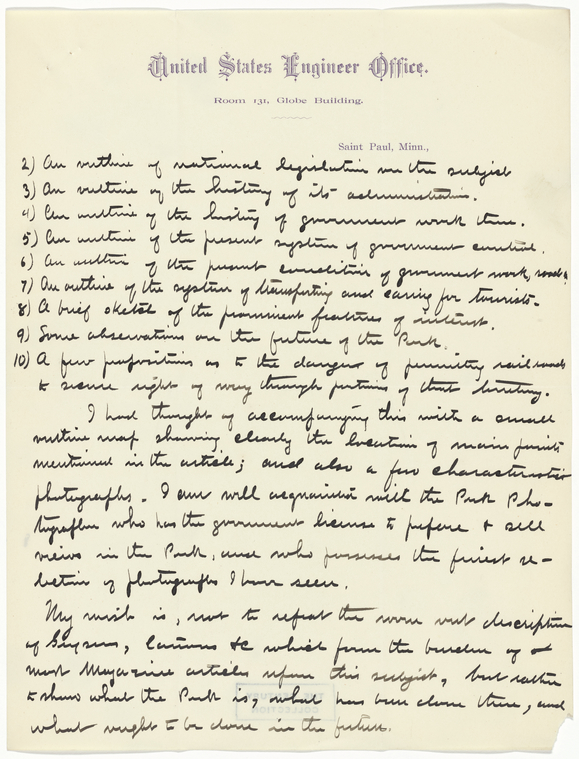 United States Engineer Office.
Room 131, Globe Building.
Saint Paul, Minn.,
2) An outline of national legislation on the subject
3) An outline of the history of its administration.
4) An outline of the history of government work there.
5) An outline of the present system of government control.
6) An outline of the present condition of government work, roads &
7) An outline of the system of transporting and caring for tourists.
8) A brief sketch of the prominent features of interest.
9) Some observations on the future of the Park.
10) A few propositions as to the danger of permitting railroads
to secure right of way through portions of that territory.
I had thought of accompanying this with a small
outline map showing clearly the location of main points
mentioned in the article; and also a few characteristic
photographs. I am well acquainted with the Park Pho-
tographer who has the government license to prepare & sell
views in the Park, and who possesses the finest se-
lection of photographs I have seen.
My wish is, not to repeat the worn out description
of Geysers, Canons &c which form the burden of
most Magazine articles upon this subject, but rather
to show what the Park is, what has been done there, and
what ought to be done in the future.